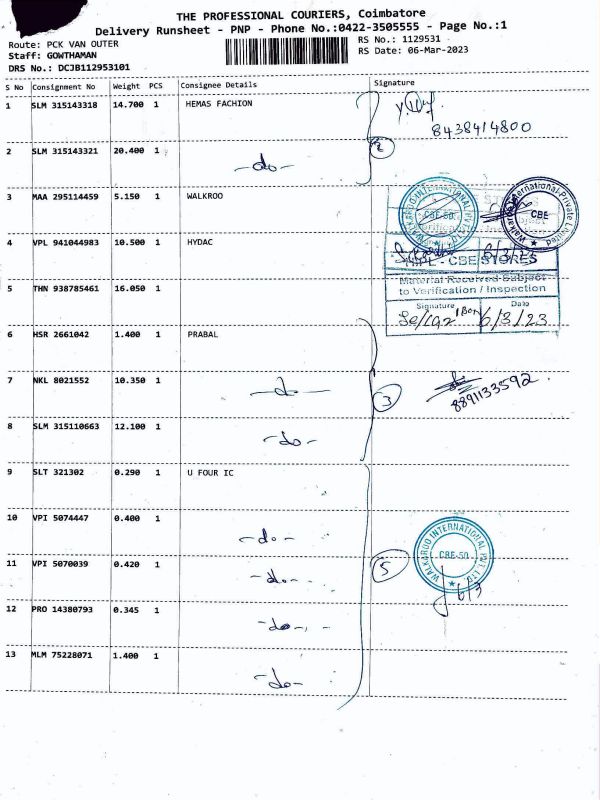 THE PROFESSIONAL COURIERS, Coimbatore
Delivery Runsheet - PNP - Phone No.:0422-3505555 - Page No.:1
Route: PCK VAN OUTER
RS No.: 1129531
Staff: GOWTHAMAN
RS Date: 06-Mar-2023
DRS No.: DCJB112953101
S No Consignment No Weight PCS Consignee Details Signature
1 SLM 315143318 14.700 1 HEMAS FACHION
8438414800
2 SLM 315143321 20.400 1 -do- 2
3 MAA 295114459 5.150 1 WALKROO
WALKAROO INTERNATIONAL PVT. LTD.
CBE-50
Walkaroo International Private Limited
CBE
4 VPL 941044983 10.500 1 HYDAC
6/3/23
CBE STORES
Material Received Subject
to Verification / Inspection
5 THN 938785461 16.050 1
Signature Date
6/3/23
6 HSR 2661042 1.400 1 PRABAL
7 NKL 8021552 10.350 1 -do- 3
8891133592
8 SLM 315110663 12.100 1 -do-
9 SLT 321302 0.290 1 U FOUR IC
10 VPI 5074447 0.400 1 -do-
WALKAROO INTERNATIONAL PVT. LTD.
CBE-50
11 VPI 5070039 0.420 1 -do- 5
6/3
12 PRO 14380793 0.345 1 -do-
13 MLM 75228071 1.400 1 -do-